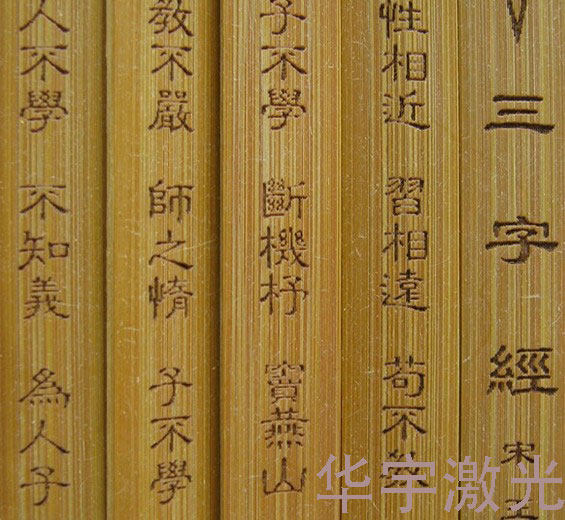 三字經 宋王
性相近 習相遠 苟不教
子不學 斷機杼 竇燕山
教不嚴 師之惰 子不學
人不學 不知義 為人子
华宇激光